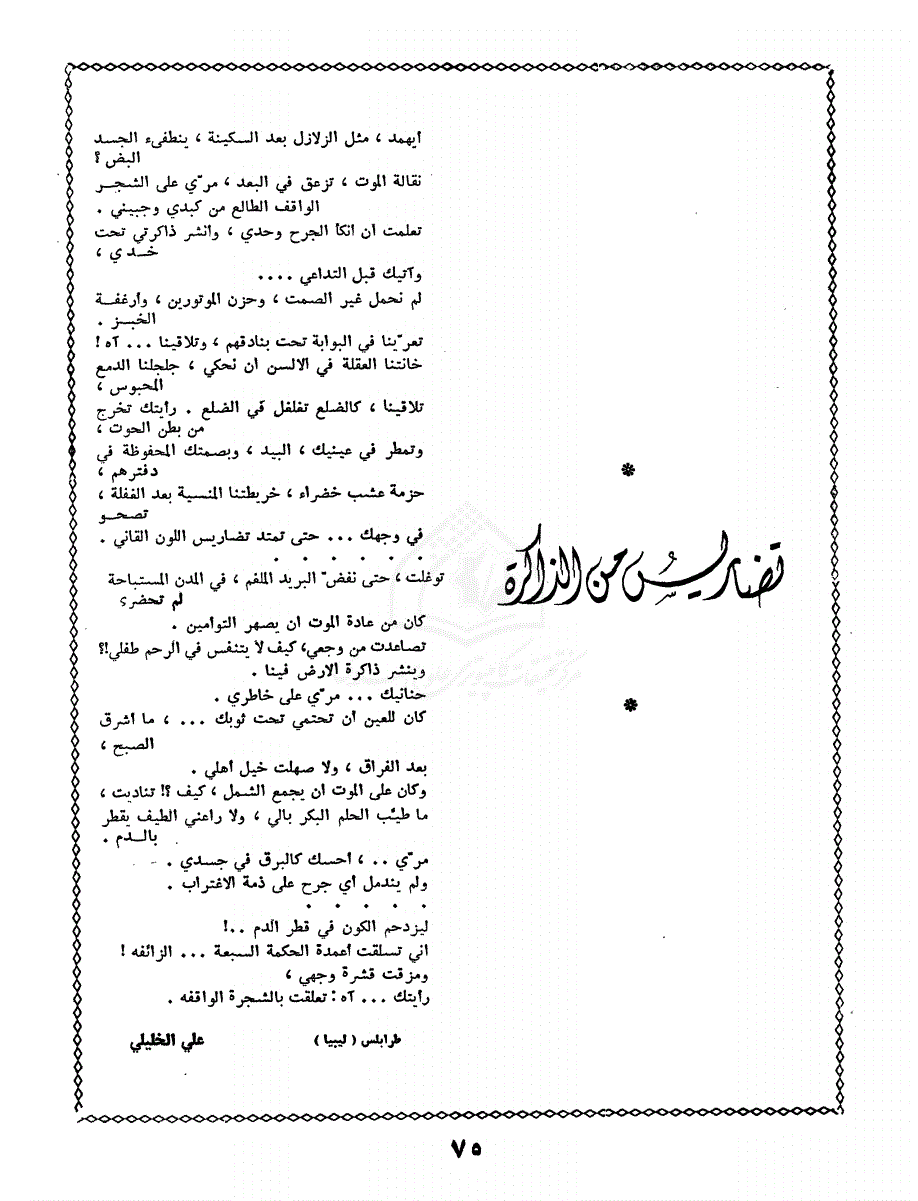 تضاريس من الذاكرة
أيهمد ، مثل الزلازل بعد السكينة ، ينطفىء الجسد
البض ؟
نقالة الموت ، تزعق في البعد ، مرّي على الشجر
الواقف الطالع من كبدي وجبيني .
تعلمت ان أنكأ الجرح وحدي ، وأنشر ذاكرتي تحت
خدي ،
وآتيك قبل التداعي ....
لم نحمل غير الصمت ، وحزن الموتورين ، وأرغفة
الخبز .
تعرّينا في البوابة تحت بنادقهم ، وتلاقينا ... آه !
خانتنا العقلة في الالسن ان نحكي ، جلجلنا الدمع
المحبوس ،
تلاقينا ، كالضلع تغلغل في الضلع . رأيتك تخرج
من بطن الحوت ،
وتمطر في عينيك ، البيد ، وبصمتك المحفوظة في
دفترهم ،
حزمة عشب خضراء ، خريطتنا المنسية بعد الغفلة ،
تصحو
في وجهك ... حتى تمتد تضاريس اللون القاني .
. . . . . .
توغلت ، حتى نفضّ البريد الملغم ، في المدن المستباحة
لم تحضري
كان من عادة الموت ان يصهر التوأمين .
تصاعدت من وجعي، كيف لا يتنفس في الرحم طفلي!؟
وينشر ذاكرة الارض فينا .
حنانيك ... مرّي على خاطري .
كان للعين ان تحتمي تحت ثوبك ... ، ما أشرق
الصبح ،
بعد الفراق ، ولا صهلت خيل أهلي .
وكان على الموت ان يجمع الشمل ، كيف ؟! تناديت ،
ما طيّب الحلم البكر بالي ، ولا راعني الطيف يقطر
بالدم .
مرّي .. ، أحسك كالبرق في جسدي .
ولم يندمل أي جرح على ذمة الاغتراب .
. . . . .
ليزدحم الكون في قطر الدم ..!
اني تسلقت أعمدة الحكمة السبعة ... الزائفه !
ومزقت قشرة وجهي ،
رأيتك ... آه : تعلقت بالشجرة الواقفه .
طرابلس ( ليبيا )
علي الخليلي
٧٥